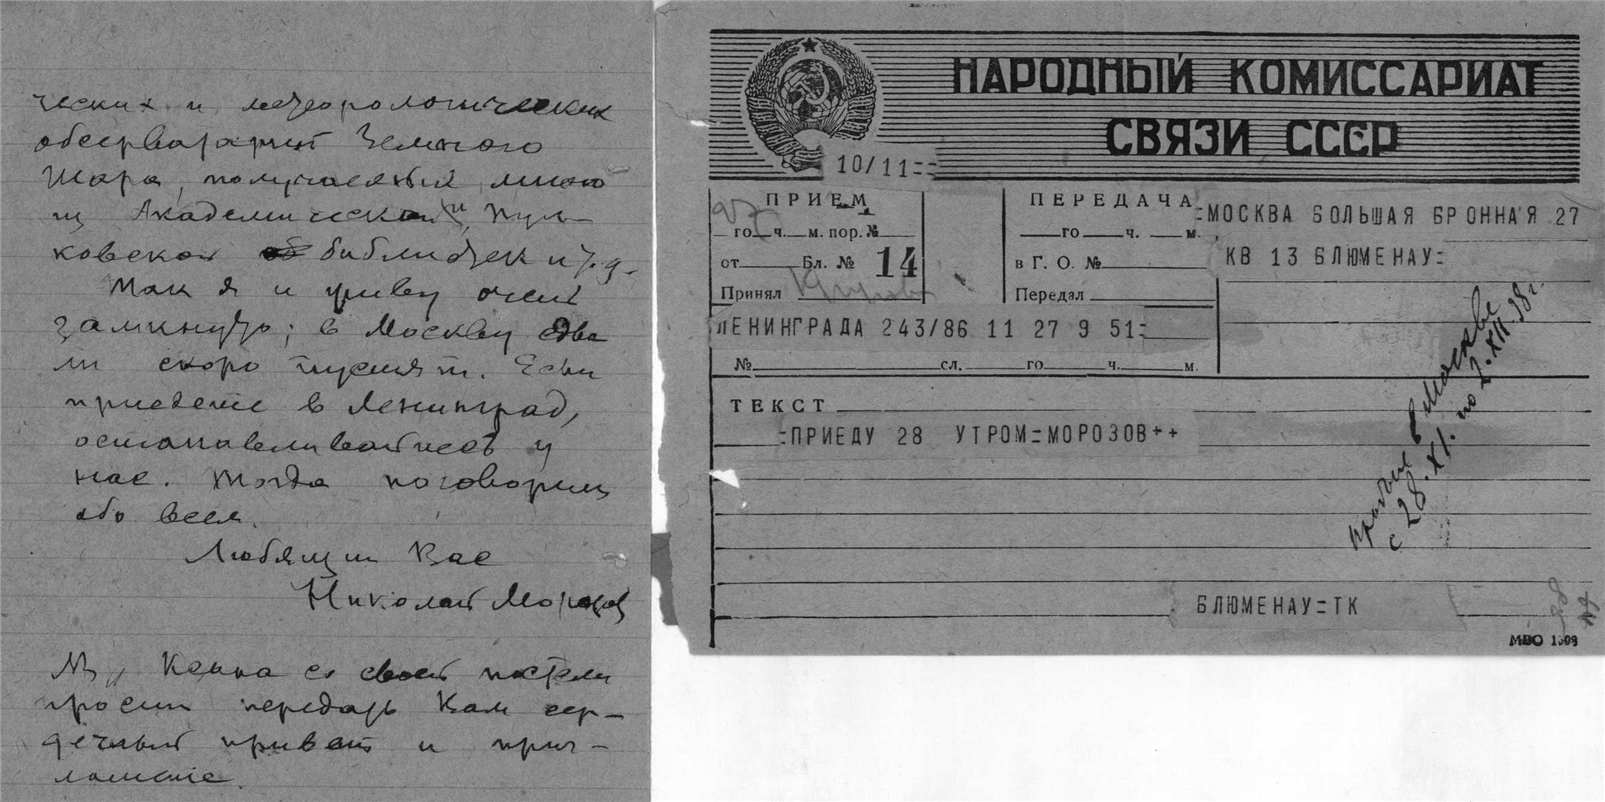 ческих и метеорологических
обсерваторий Земного
Шара, получаемых мною
из Академической и Пул-
ковской библиотек и т.д.
Так я и живу очень
замкнуто; в Москву едва
ли скоро пустят. Если
приедете в Ленинград,
останавливайтесь у
нас. Тогда поговорим
обо всем.
Любящий Вас
Николай Морозов
Ксана со своей постели
просит передать Вам сер-
дечный привет и приг-
лашение.
НАРОДНЫЙ КОМИССАРИАТ
СВЯЗИ СССР
10/11==
ПРИЕМ
го ч. м. пор. №
от Бл. № 14
Принял
ПЕРЕДАЧА
го ч. м.
в Г. О. №
Передал
=МОСКВА БОЛЬШАЯ БРОННАЯ 27
КВ 13 БЛЮМЕНАУ=
ЛЕНИНГРАДА 243/86 11 27 9 51=
№ сл. го ч. м.
ТЕКСТ
=ПРИЕДУ 28 УТРОМ=МОРОЗОВ++
в Москве
с 28.XI. по 2.XII.38г.
БЛЮМЕНАУ=ТК
МВО 1309